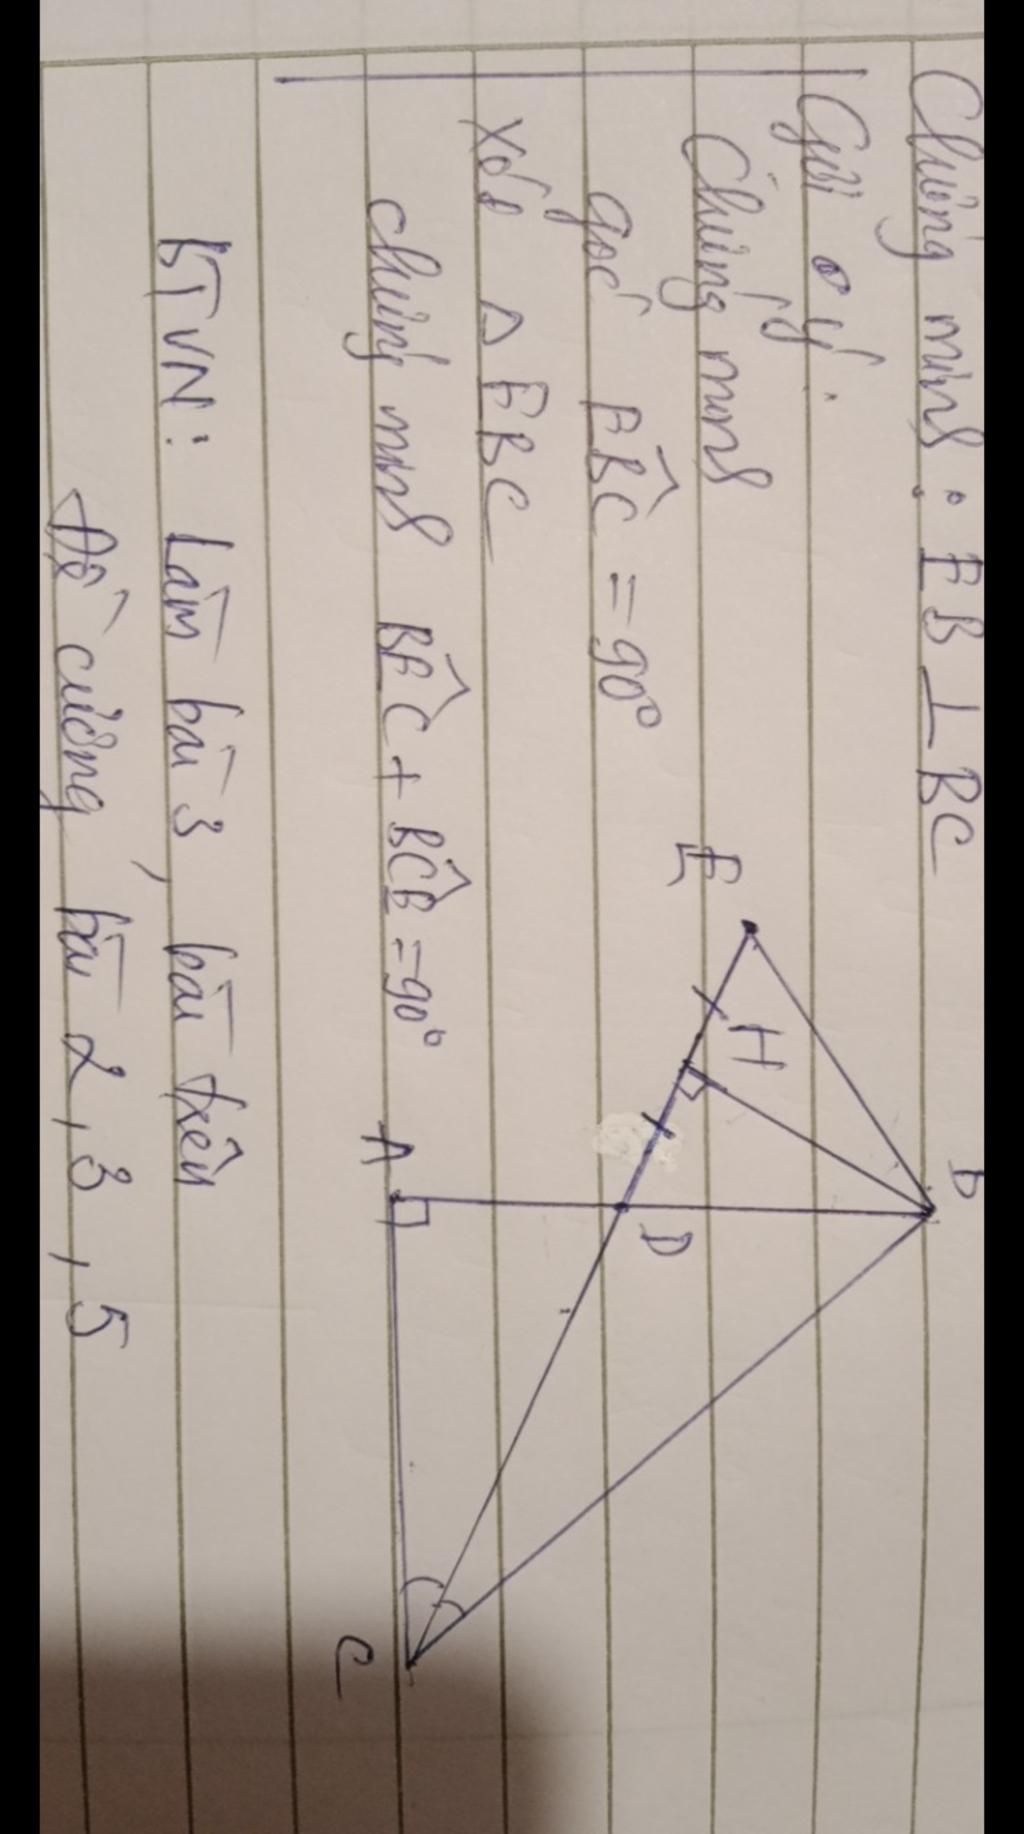 Chứng minh : EB ⊥ BC
Gợi ý :
Chứng minh
góc EB̂C = 90°
Xét △ EBC
chứng minh BÊC + BĈE = 90°
BTVN: Làm bài 3, bài trên
Đề cương bài 2, 3, 5
E
H
B
D
A
C